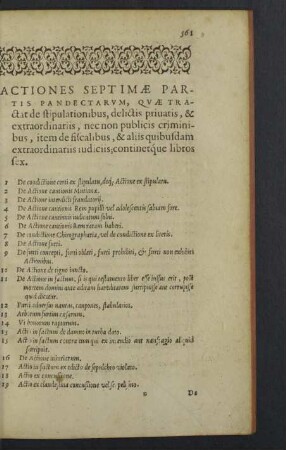 361
ACTIONES SEPTIMÆ PAR-
TIS PANDECTARVM, QVÆ TRA-
ctat de stipulationibus, delictis priuatis, &
extraordinariis, nec non publicis crimini-
bus, item de fiscalibus, & aliis quibusdam
extraordinariis iudiciis, continetque libros
sex.
1 De condictione certi ex stipulatu, deq; Actione ex stipulatu.
2 De Actione cautionis Mutianæ.
3 De Actione interdicti fraudatorii.
4 De Actione cautionis Rem pupilli vel adolescentis saluam fore.
5 De Actione cautionis iudicatum solui.
6 De Actione cautionis Rem ratam haberi.
7 De condictione Chirographaria, vel de condictione ex literis.
8 De Actione furti.
9 De furti concepti, furti oblati, furti prohibiti, & furti non exhibiti
Actionibus.
10 De Actione de tigno iuncto.
11 De Actione in factum, si is qui testamento liber esse iussus erit, post
mortem domini ante aditam hæreditatem surripuisse aut corrupisse
quid dicatur.
12 Furti aduersus nautas, caupones, stabularios.
13 Arborum furtim cæsarum.
14 Vi bonorum raptorum.
15 Actio in factum de damno in turba dato.
15 Actio in factum contra eum qui ex incendio aut naufragio aliquid
surripuit.
16 De Actione iniuriarum.
17 Actio in factum ex edicto de sepulchro violato.
18 Actio ex concussione.
19 Actio ex clandestina concussione vel
z De